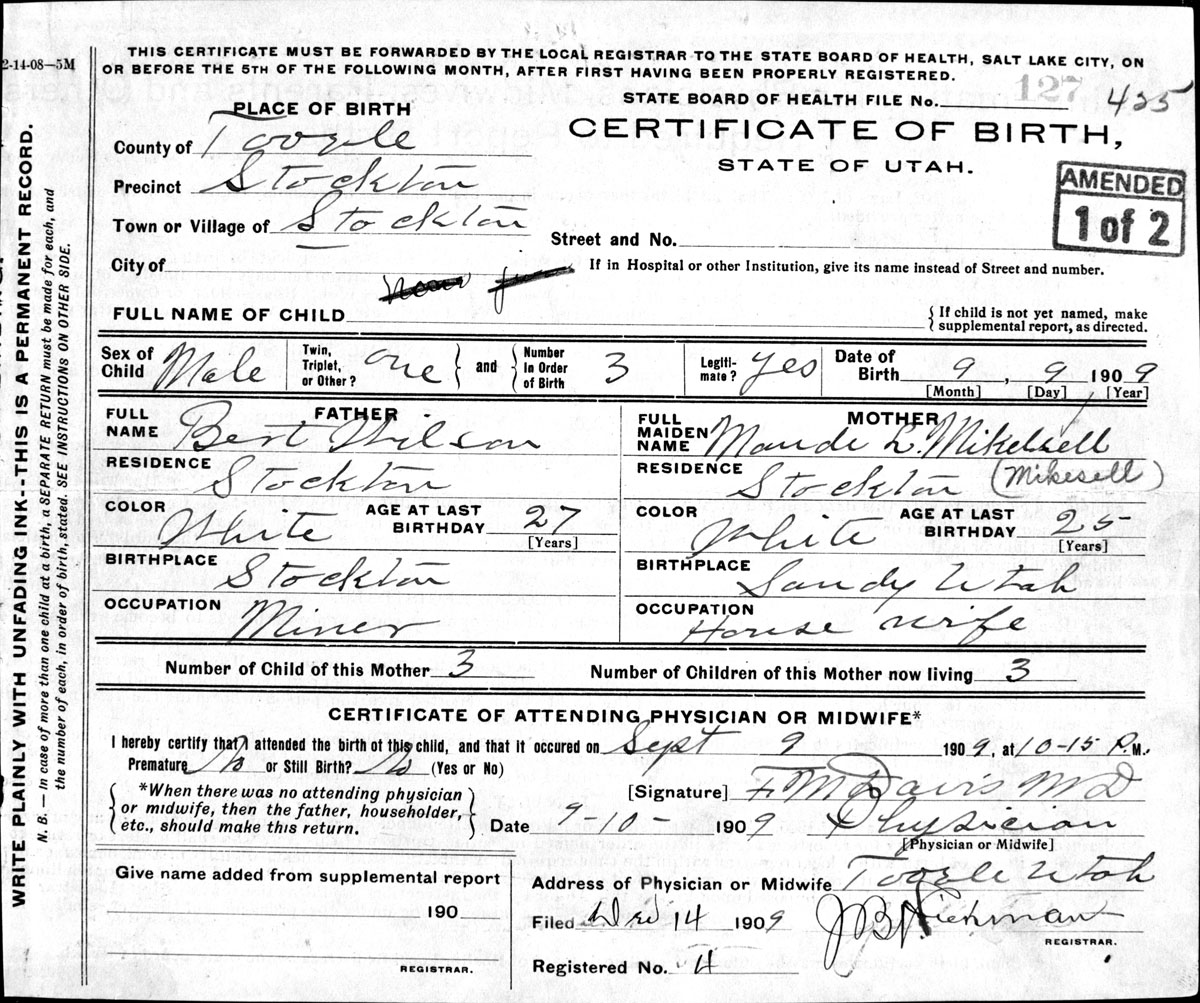 2-14-08—5M
THIS CERTIFICATE MUST BE FORWARDED BY THE LOCAL REGISTRAR TO THE STATE BOARD OF HEALTH, SALT LAKE CITY, ON
OR BEFORE THE 5TH OF THE FOLLOWING MONTH, AFTER FIRST HAVING BEEN PROPERLY REGISTERED.
PLACE OF BIRTH
STATE BOARD OF HEALTH FILE No. 127 425
County of Tooele
CERTIFICATE OF BIRTH,
STATE OF UTAH.
AMENDED
1 of 2
Precinct Stockton
Town or Village of Stockton
Street and No.
City of
If in Hospital or other Institution, give its name instead of Street and number.
FULL NAME OF CHILD
If child is not yet named, make
supplemental report, as directed.
Sex of Child Male
Twin, Triplet, or Other? one
and
Number In Order of Birth 3
Legiti-mate? yes
Date of Birth 9, 9 1909
[Month] [Day] [Year]
FATHER
FULL NAME Bert Wilson
RESIDENCE Stockton
COLOR White
AGE AT LAST BIRTHDAY 27
[Years]
BIRTHPLACE Stockton
OCCUPATION Miner
MOTHER
FULL MAIDEN NAME Maude L. Mikelsell
RESIDENCE Stockton (Mikesell)
COLOR White
AGE AT LAST BIRTHDAY 25
[Years]
BIRTHPLACE Sandy Utah
OCCUPATION House wife
Number of Child of this Mother 3
Number of Children of this Mother now living 3
CERTIFICATE OF ATTENDING PHYSICIAN OR MIDWIFE*
I hereby certify that I attended the birth of this child, and that it occured on Sept 9 1909, at 10-15 P.M.
Premature No or Still Birth? No (Yes or No)
*When there was no attending physician
or midwife, then the father, householder,
etc., should make this return.
[Signature] F M Davis M D
Date 9-10- 1909 Physician
[Physician or Midwife]
Give name added from supplemental report
190
REGISTRAR.
Address of Physician or Midwife Tooele Utah
Filed 14 1909 J B Hickman
REGISTRAR.
Registered No. 4
WRITE PLAINLY WITH UNFADING INK--THIS IS A PERMANENT RECORD.
N. B. — In case of more than one child at a birth, a SEPARATE RETURN must be made for each, and
the number of each, in order of birth, stated. SEE INSTRUCTIONS ON OTHER SIDE.